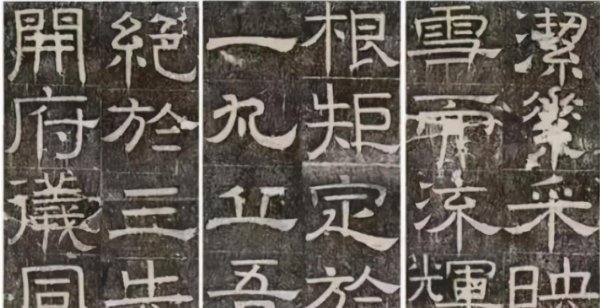 潔粲采映
雪而流輝
根矩定於
一九丘吾
絕於三
開府儀同